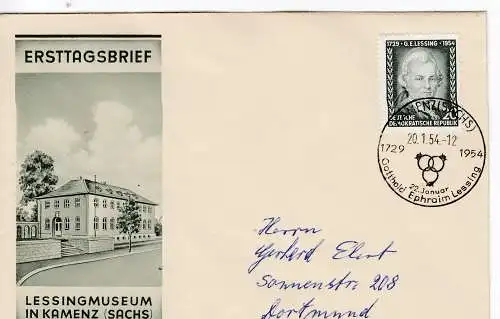 ERSTTAGSBRIEF
LESSINGMUSEUM
IN KAMENZ (SACHS)
1729 · G.E. LESSING · 1954
20
DEUTSCHE
DEMOKRATISCHE REPUBLIK
KAMENZ (SACHS)
20.1.54.-12
1729 1954
22. Januar
Gotthold Ephraim Lessing
Herrn
Gerhard Elert
Sonnenstr 208
Dortmund